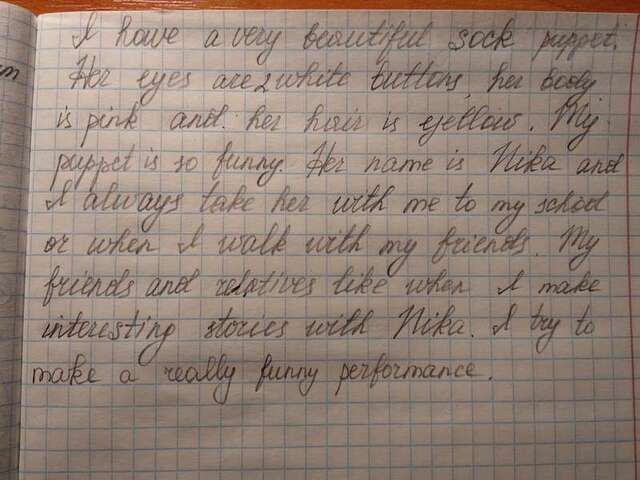 I have a very beautiful sock puppet.
Her eyes are 2 white buttons, her body
is pink and her hair is yellow. My
puppet is so funny. Her name is Nika and
I always take her with me to my school
or when I walk with my friends. My
friends and relatives like when I make
interesting stories with Nika. I try to
make a really funny performance.